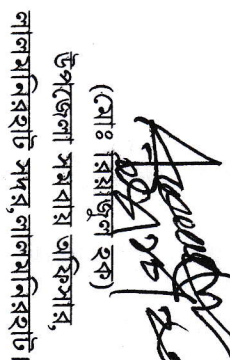 (মোঃ রিয়াজুল হক)
উপজেলা সমবায় অফিসার,
লালমনিরহাট সদর,লালমনিরহাট।